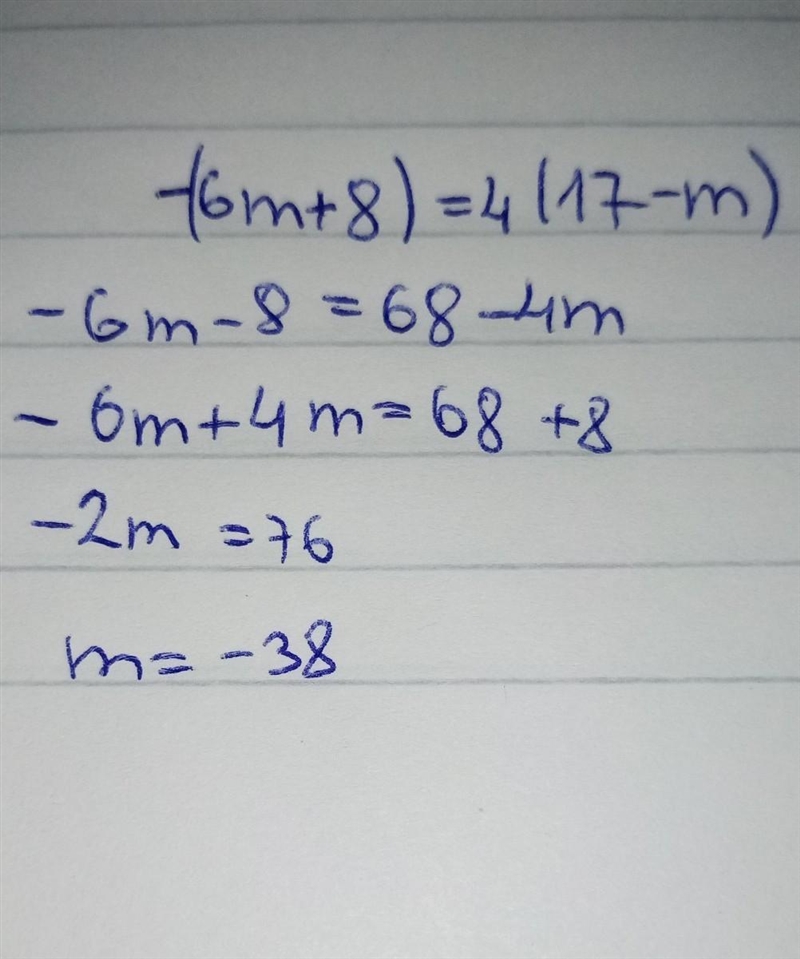 -(6m+8)=4(17-m)
-6m-8=68-4m
-6m+4m=68+8
-2m=76
m=-38